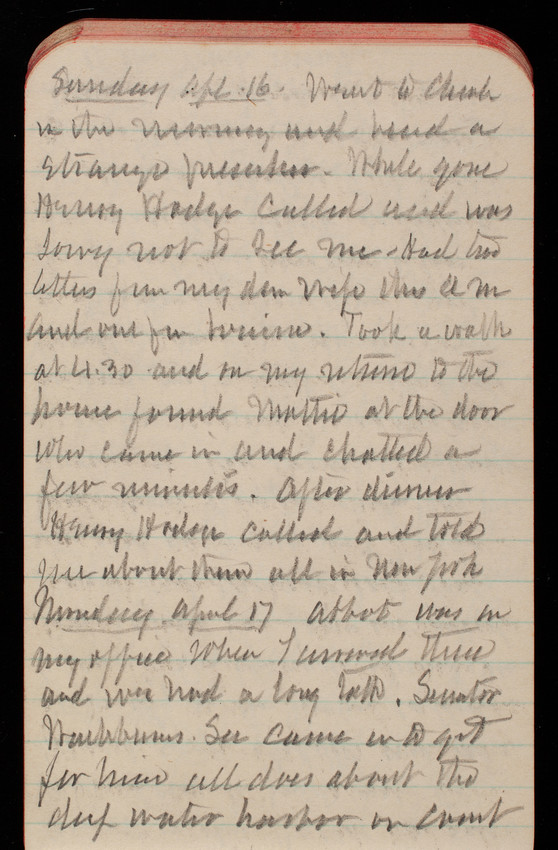 Sunday Apl. 16. Went to Church
in the morning and heard a
strange preacher. While gone
Henry Hodge called and was
sorry not to see me. Had two
letters from my dear wife this A M
and one from . Took a walk
at 4.30 and on my return to the
house found Mattie at the door
who came in and chatted a
few minutes. After dinner
Henry Hodge called and told
me about them all in New York
Monday April 17 Abbot was in
my office when I arrived there
and we had a long talk. Senator
Washburns Sec came in to get
for him all docs about the
deep water harbor on coast